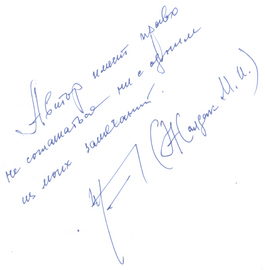 Автор имеет право
не соглашаться ни с одним
из моих замечаний.
(Жалдак М.И.)